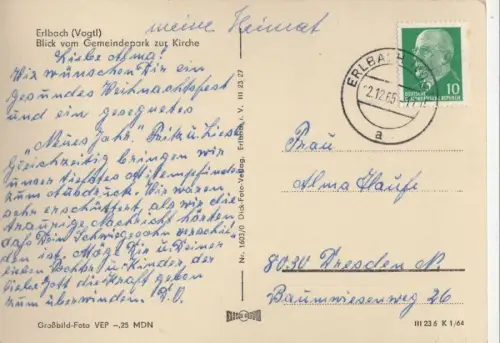 Erlbach (Vogtl)
Blick vom Gemeindepark zur Kirche
meine Heimat
Liebe Alma!
Wir wünschen Dir ein
gesundes Weihnachtsfest
und ein gesegnetes
"Neues Jahr".
Gleichzeitig bringen wir
unser tiefstes Mitempfinden
zum Ausdruck. Wir waren
sehr erschüttert, als wir die
traurige Nachricht hörten,
daß Dein Schwiegersohn verschie-
den ist. Möge Dir u. Deiner
lieben Tochter u. Kinder, der
liebe Gott die Kraft geben
zum überwinden. D.O.
Großbild-Foto VEP -,25 MDN
Nr. 1603/0 Dick-Foto-Verlag, Erlbach i. V. III 23 27
ERLBACH
2.12.65
a
10
DEUTSCHE
DEMOKRATISCHE REPUBLIK
Frau
Alma Haufe
8030 Dresden N.
Baumwiesenweg 26
III 23 6 K 1/64